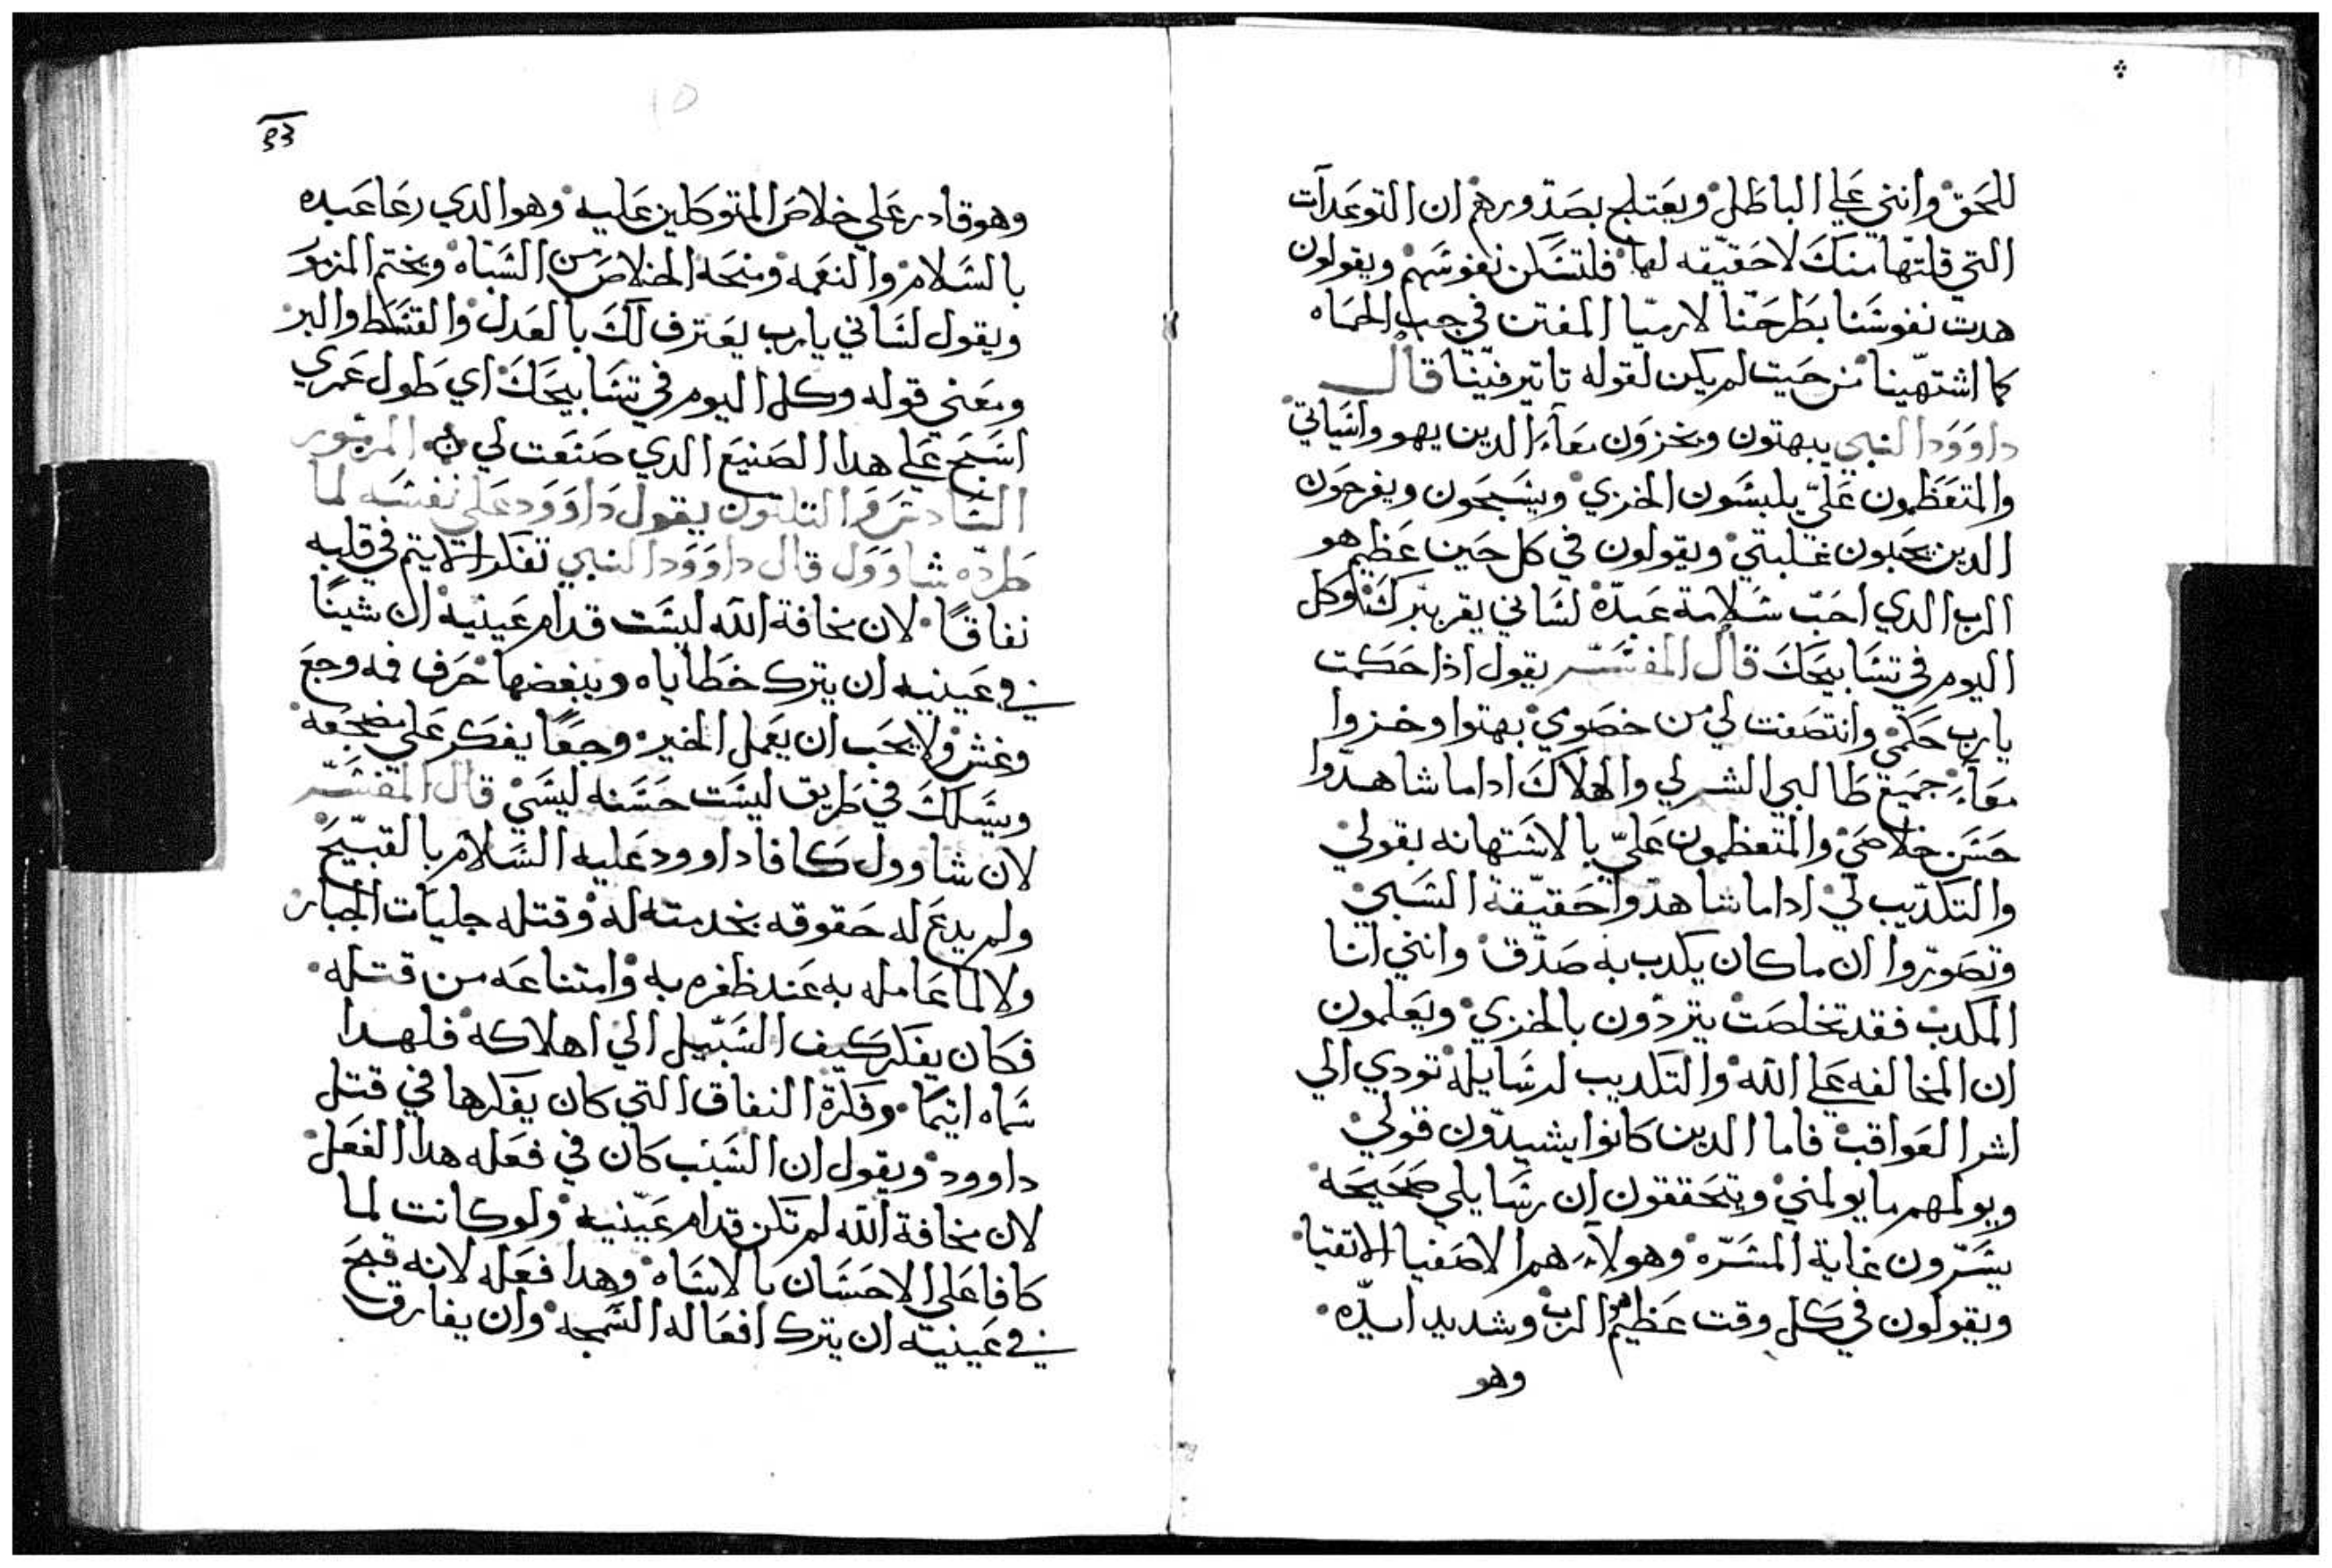 للحق وانني علي الباطل ويعتلج بصدورهم ان التوعدات
التي قلتها منك لا حقيقه لها فلتسكن نفوسهم ويقولون
هدت نفوسنا بطرحنا لارميا المفتن في جب الحماه
كما اشتهينا من حيت لم يكن لقوله تاتير فينا قال
داوود النبي يبهتون ويخزون معاً الدين يهووا سياتي
والمتعظمون علي يلبسون الخزي ويسبحون ويفرحون
الدين يحبون غلبتي ويقولون في كل حين عظيم هو
الرب الدي احب سلامة عبده لساني يقر ببرك وكل
اليوم في تسابيحك قال المفسر يقول اذا حكمت
يارب حكمي وانتصفت لي من خصوي بهتوا وخزوا
معاً جميع طالبي الشر لي والهلاك اداما شاهدوا
حسن خلاصي والمتعظمون علي بالاستهانه بقولي
والتكديب لي اداما شاهدوا حقيقة السبي
وتصوروا ان ماكان يكدب به صدق وانني انا
المكدب فقد تخلصت يتردون بالخزي ويعلمون
ان المخالفه علي الله والتكديب لرسايله تودي الي
اشر العواقب فاما الدين كانوا يشيدون قولي
ويولمهم ما يولمني ويتحققون ان رسايلي صحيحه
يسرون غاية المسره وهولاء هم الاصفيا الاتقيا
ويقولون في كل وقت عظيم هو الرب وشديد ايده
وهو
33
وهو قادر علي خلاص المتوكلين عليه وهو الدي رعا عبده
بالسلام والنعمه ومنحه الخلاص من السباه ويختم المزمور
ويقول لساني يارب يعترف لك بالعدل والقسط والبر
ومعني قوله وكل اليوم في تسابيحك اي طول عمري
اسبح علي هدا الصنيع الدي صنعت لي المزمور
السادس والتلتون يقول داوود علي نفسه لما
طرده شاوول قال داوود النبي تفكر الاتيم في قلبه
نفاقاً لان مخافة الله ليست قدام عينيه ان شيناً
في عينيه ان يترك خطاياه ويبغضها حرف فمه وجع
وغش ولا يحب ان يعمل الخير وجعاً يفكر علي مضجعه
ويسلك في طريق ليست حسنه ليسي قال المفسر
لان شاوول كافا داوود عليه السلام بالقبيح
ولم يدع له حقوقه بخدمته له وقتله جليات الجبار
ولا لما عامله به عند ظفره به وامتناعه من قتله
فكان يفكر كيف السبيل الي اهلاكه فلهدا
سماه اتيماً وفكرة النفاق التي كان يفكرها في قتل
داوود ويقول ان السبب كان في فعله هدا الفعل
لان مخافة الله لم تكن قدام عينيه ولو كانت لما
كافا علي الاحسان بالاساه وهدا فعله لانه قبح
في عينيه ان يترك افعاله السمجه وان يفارق